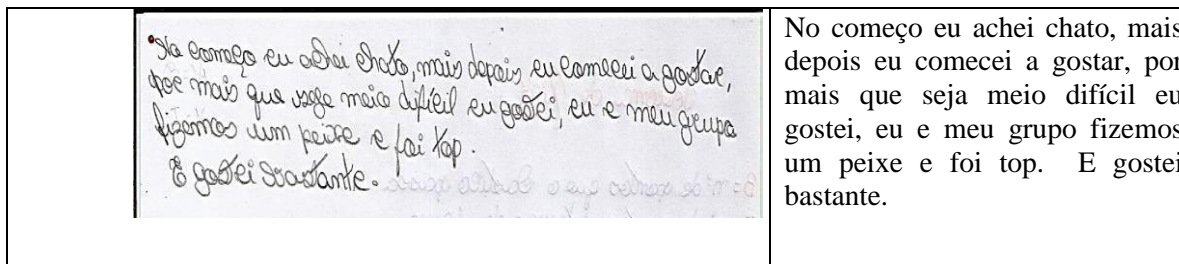 No começo eu achei chato, mais depois eu comecei a gostar,
por mais que seje meio difícil eu gostei, eu e meu grupo
fizemos um peixe e foi top.
E gostei bastante.
No começo eu achei chato, mais
depois eu comecei a gostar, por
mais que seja meio difícil eu
gostei, eu e meu grupo fizemos
um peixe e foi top. E gostei
bastante.